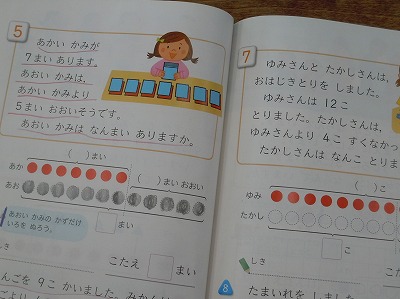 5
あかい かみが
7まい あります。
あおい かみは、
あかい かみより
5まい おおいそうです。
あおい かみは なんまい ありますか。
( )まい
あか
( )まい おおい
あお
あおい かみの かずだけ
いろを ぬろう。
まい
しき
こたえ まい
んごを 9こ かいました。
7
ゆみさんと たかしさんは、
おはじきとりを しました。
ゆみさんは 12こ
とりました。たかしさんは、
ゆみさんより 4こ すくなかっ
たかしさんは なんこ とりま
( )こ
ゆみ
たかし
こ
しき
8
たまいれを しました